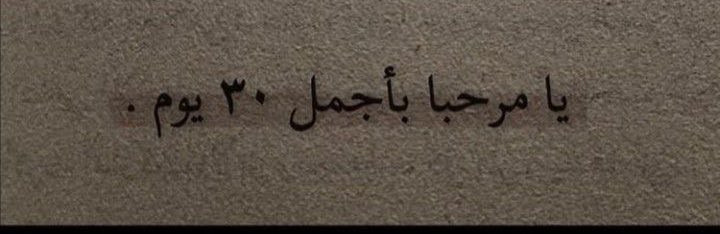 يا مرحبا بأجمل ٣٠ يوم .